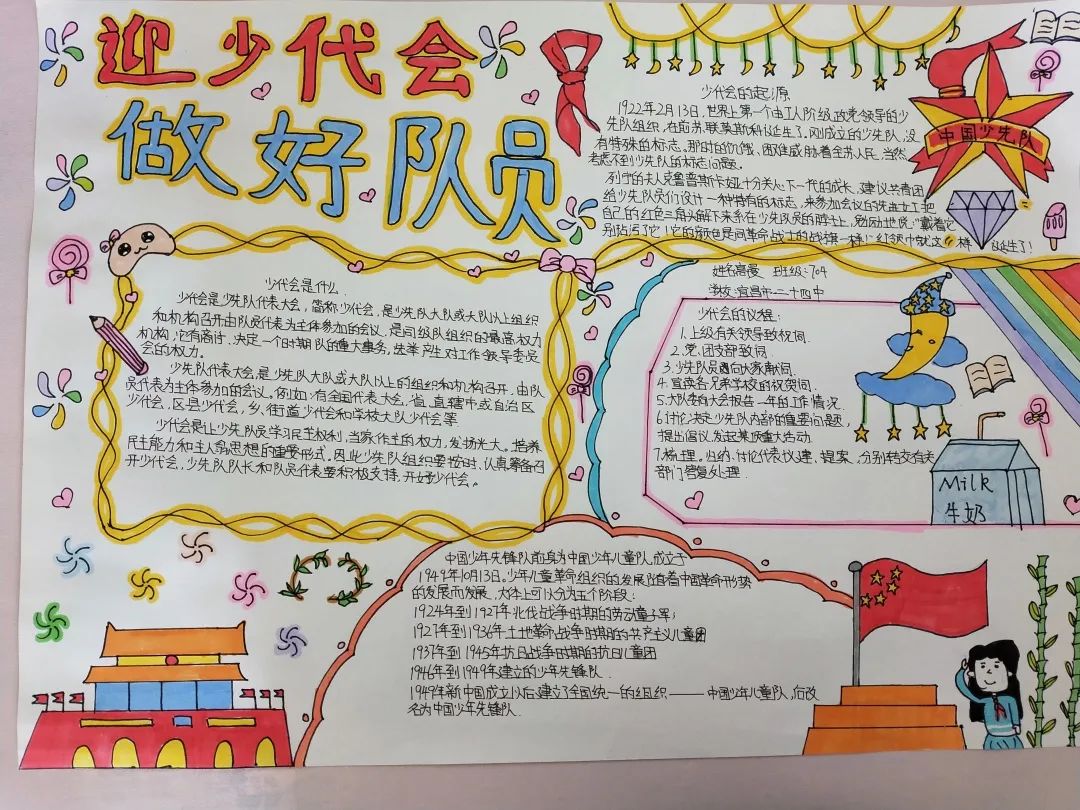 迎少代会
做好队员
少代会的起源
1922年2月13日,世界上第一个由工人阶级政党领导的少
先队组织,在前苏联莫斯科诞生了.刚成立的少先队,没
有特殊的标志。那时的饥饿、困难威胁着全苏人民,当然
考虑不到少先队的标志问题。
列宁的夫人克鲁普斯卡娅十分关心下一代的成长,建议共青团
给少先队员们设计一种特有的标志,来参加会议的先进女工把
自己的红色三角头解下来系在少先队员的脖子上,勉励他说:"戴着它
别玷污了它!它的颜色是同革命战士的战旗一样!"红领巾就这样
诞生了!
中国少先队
少代会是什么
少代会是少先队代表大会,简称少代会,是少先队大队或大队以上组织
和机构召开由队员代表为主体参加的会议,是同级队组织的最高权力
机构,它有商讨、决定一个时期队的重大事务,选举产生对工作领导委员
会的权力。
少先队代表大会,是少先队大队或大队以上的组织和机构召开,由队
员代表为主体参加的会议。例如:有全国代表大会,省、直辖市或自治区
少代会,区县少代会,乡、街道少代会和学校大队少代会等
少代会是让少先队员学习民主权利,当家作主的权力,发扬光大。培养
民主能力和主人翁思想的重要形式。因此少先队组织要按时、认真筹备召
开少代会,少先队队长和队员代表要积极支持,开好少代会。
班级:704
学校:宜昌市二十四中
少代会的议程:
1.上级有关领导致祝词.
2.党、团支部致词.
3.少先队员向大家献词.
4.宣读各兄弟学校的祝贺词.
5.大队委向大会报告一年的工作情况.
6.讨论决定少先队内部的重要问题,
提出倡议,发起某项重大活动.
7.梳理、归纳、讨论代表议建、提案,分别转交有关
部门答复处理.
Milk
牛奶
中国少年先锋队前身为中国少年儿童队,成立于
1949年10月13日。少年儿童革命组织的发展沿着中国革命形势
的发展而发展,大体上可以分为五个阶段:
1924年到1927年北伐战争时期的劳动童子军;
1927年到1936年土地革命战争时期的共产主义儿童团
1937年到1945年抗日战争时期的抗日儿童团
1946年到1949年建立的少年先锋队.
1949年新中国成立以后建立了全国统一的组织——中国少年儿童队,后改
名为中国少年先锋队.